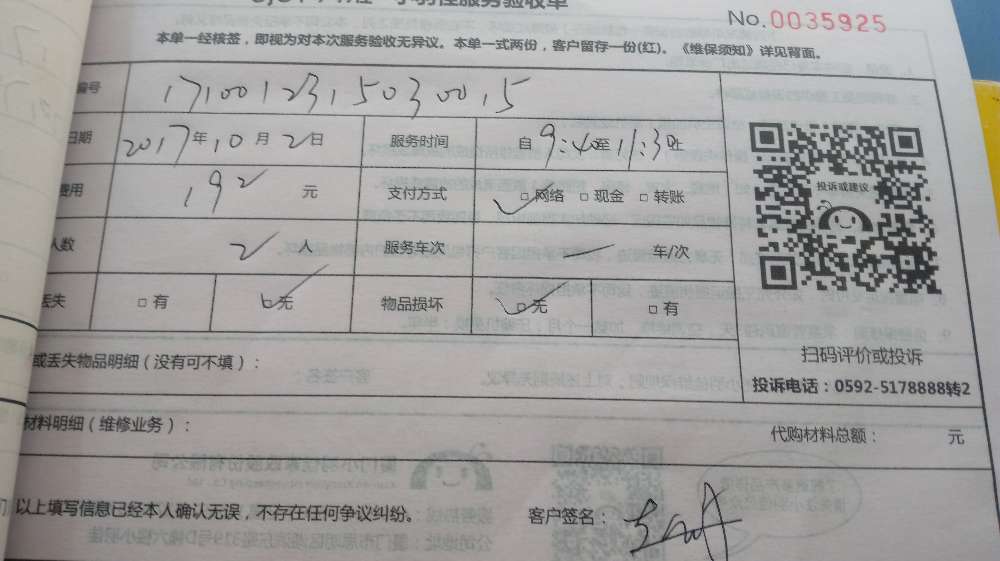 小羽佳服务验收单
No.0035925
本单一经核签，即视为对本次服务验收无异议。本单一式两份，客户留存一份(红)。《维保须知》详见背面。
编号 1710012315030015
日期 2017年10月2日 服务时间 自9:40至11:30止
费用 192元 支付方式 □网络 □现金 □转账
人数 2人 服务车次 车/次
丢失 □有 □无 物品损坏 □无 □有
投诉或建议
扫码评价或投诉
投诉电话：0592-5178888转2
或丢失物品明细（没有可不填）：
材料明细（维修业务）： 代购材料总额： 元
以上填写信息已经本人确认无误，不存在任何争议纠纷。 客户签名：